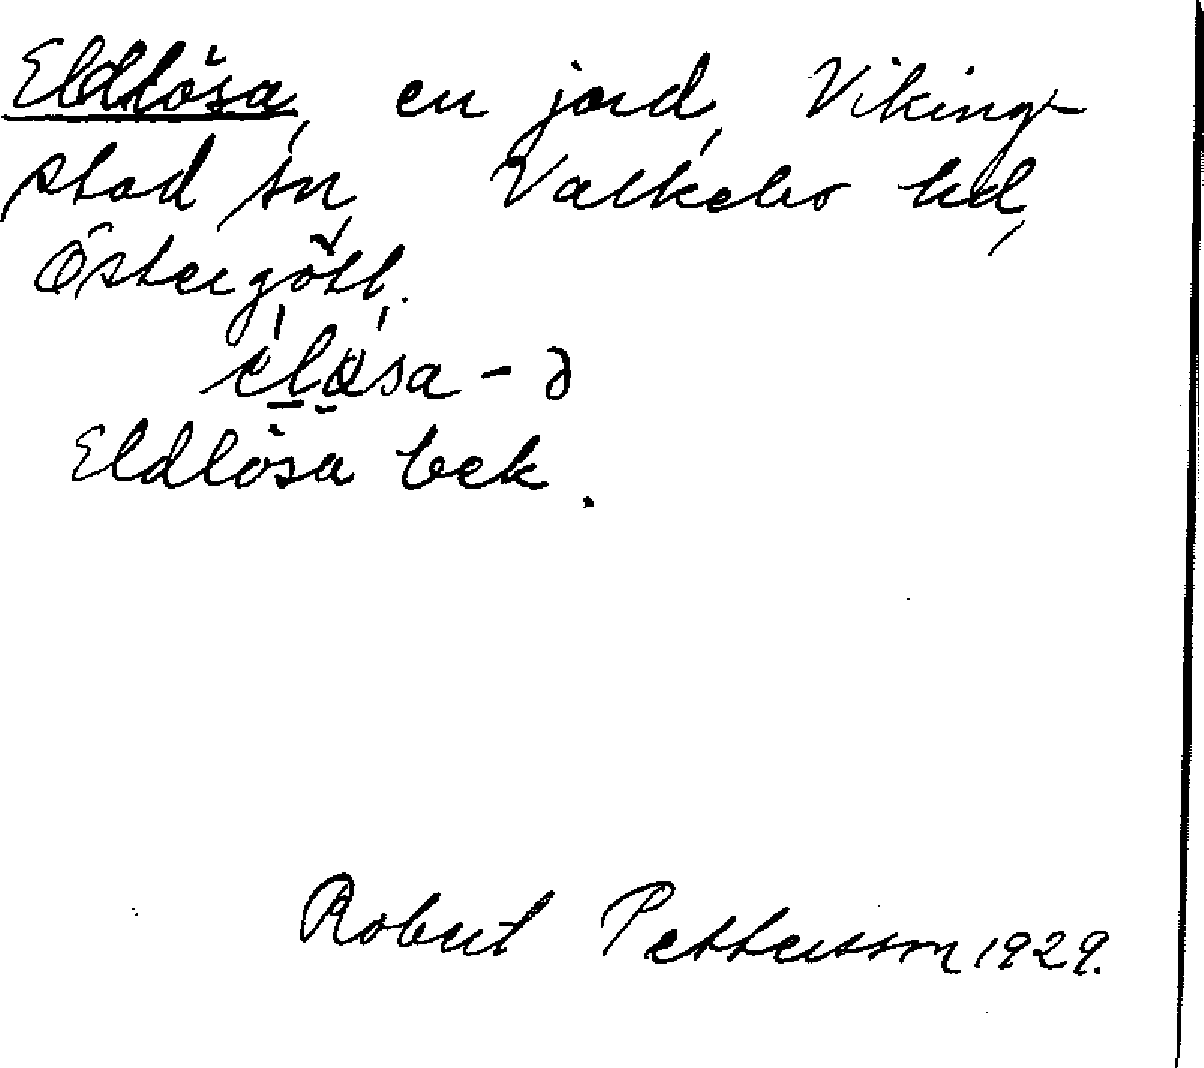 Eldlösa, en jord, Viking-
stad sn, Valkebo hd,
Östergötl.
Eldlösa bek.
Robert Pettersson 1929.